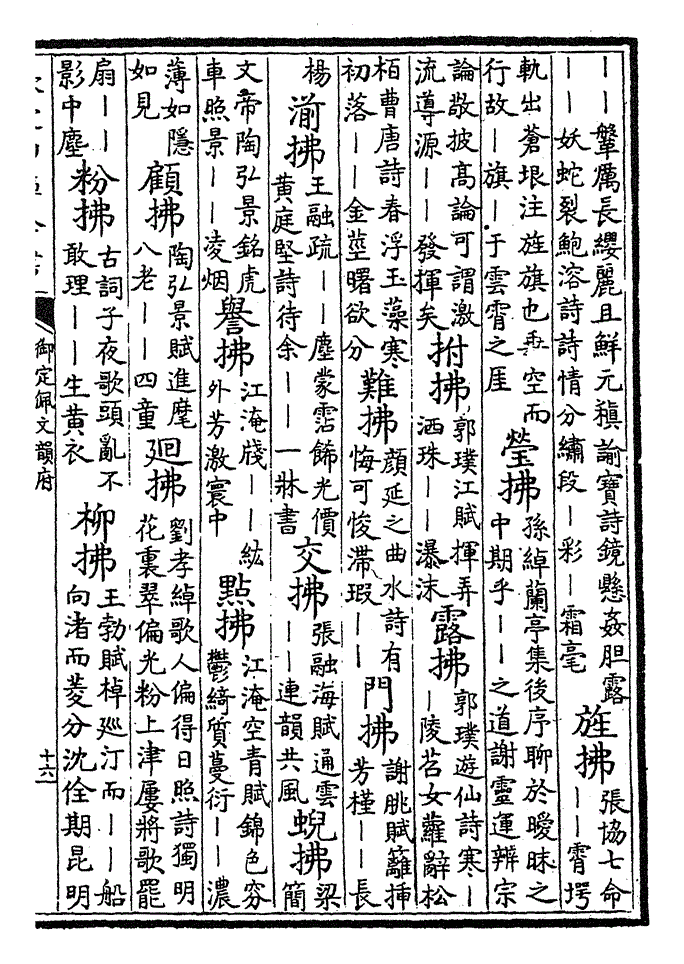 ——鞶厲長纓麗且鮮元稹諭寶詩鏡懸姦胆露
——妖蛇裂鮑溶詩詩情分繡段—彩—霜毫
旌拂
張協七命
——霄堮
軌出蒼垠注旌旗也垂空而
行故—旗—于雲霄之厓
瑩拂
孫綽蘭亭集後序聊於曖昧之
中期乎——之道謝靈運辨宗
論敬披高論可謂激
流導源——發揮矣
拊拂
郭璞江賦揮弄
洒珠——瀑沫
露拂
郭璞遊仙詩寒—
—陵苕女蘿辭松
栢曹唐詩春浮玉藻寒
初落——金莖曙欲分
難拂
顔延之曲水詩有
悔可悛滯瑕——
門拂
謝朓賦籬插
芳槿——長
楊
湔拂
王融疏——塵蒙霑飾光價
黄庭堅詩待余——一牀書
交拂
張融海賦通雲
——連韻共風
蜺拂
梁
簡
文帝陶弘景銘虎
車照景——凌烟
譽拂
江淹牋——紘
外芳激寰中
點拂
江淹空青賦錦色穷
鬱綺質蔓衍——濃
薄如隱
如見
顧拂
陶弘景賦進麾
八老——四童
廻拂
劉孝綽歌人偏得日照詩獨明
花裏翠偏光粉上津屢將歌罷
扇——
影中塵
粉拂
古詞子夜歌頭亂不
敢理——生黄衣
柳拂
王勃賦棹廵汀而——船
向渚而菱分沈佺期昆明
御定佩文韻府
十六